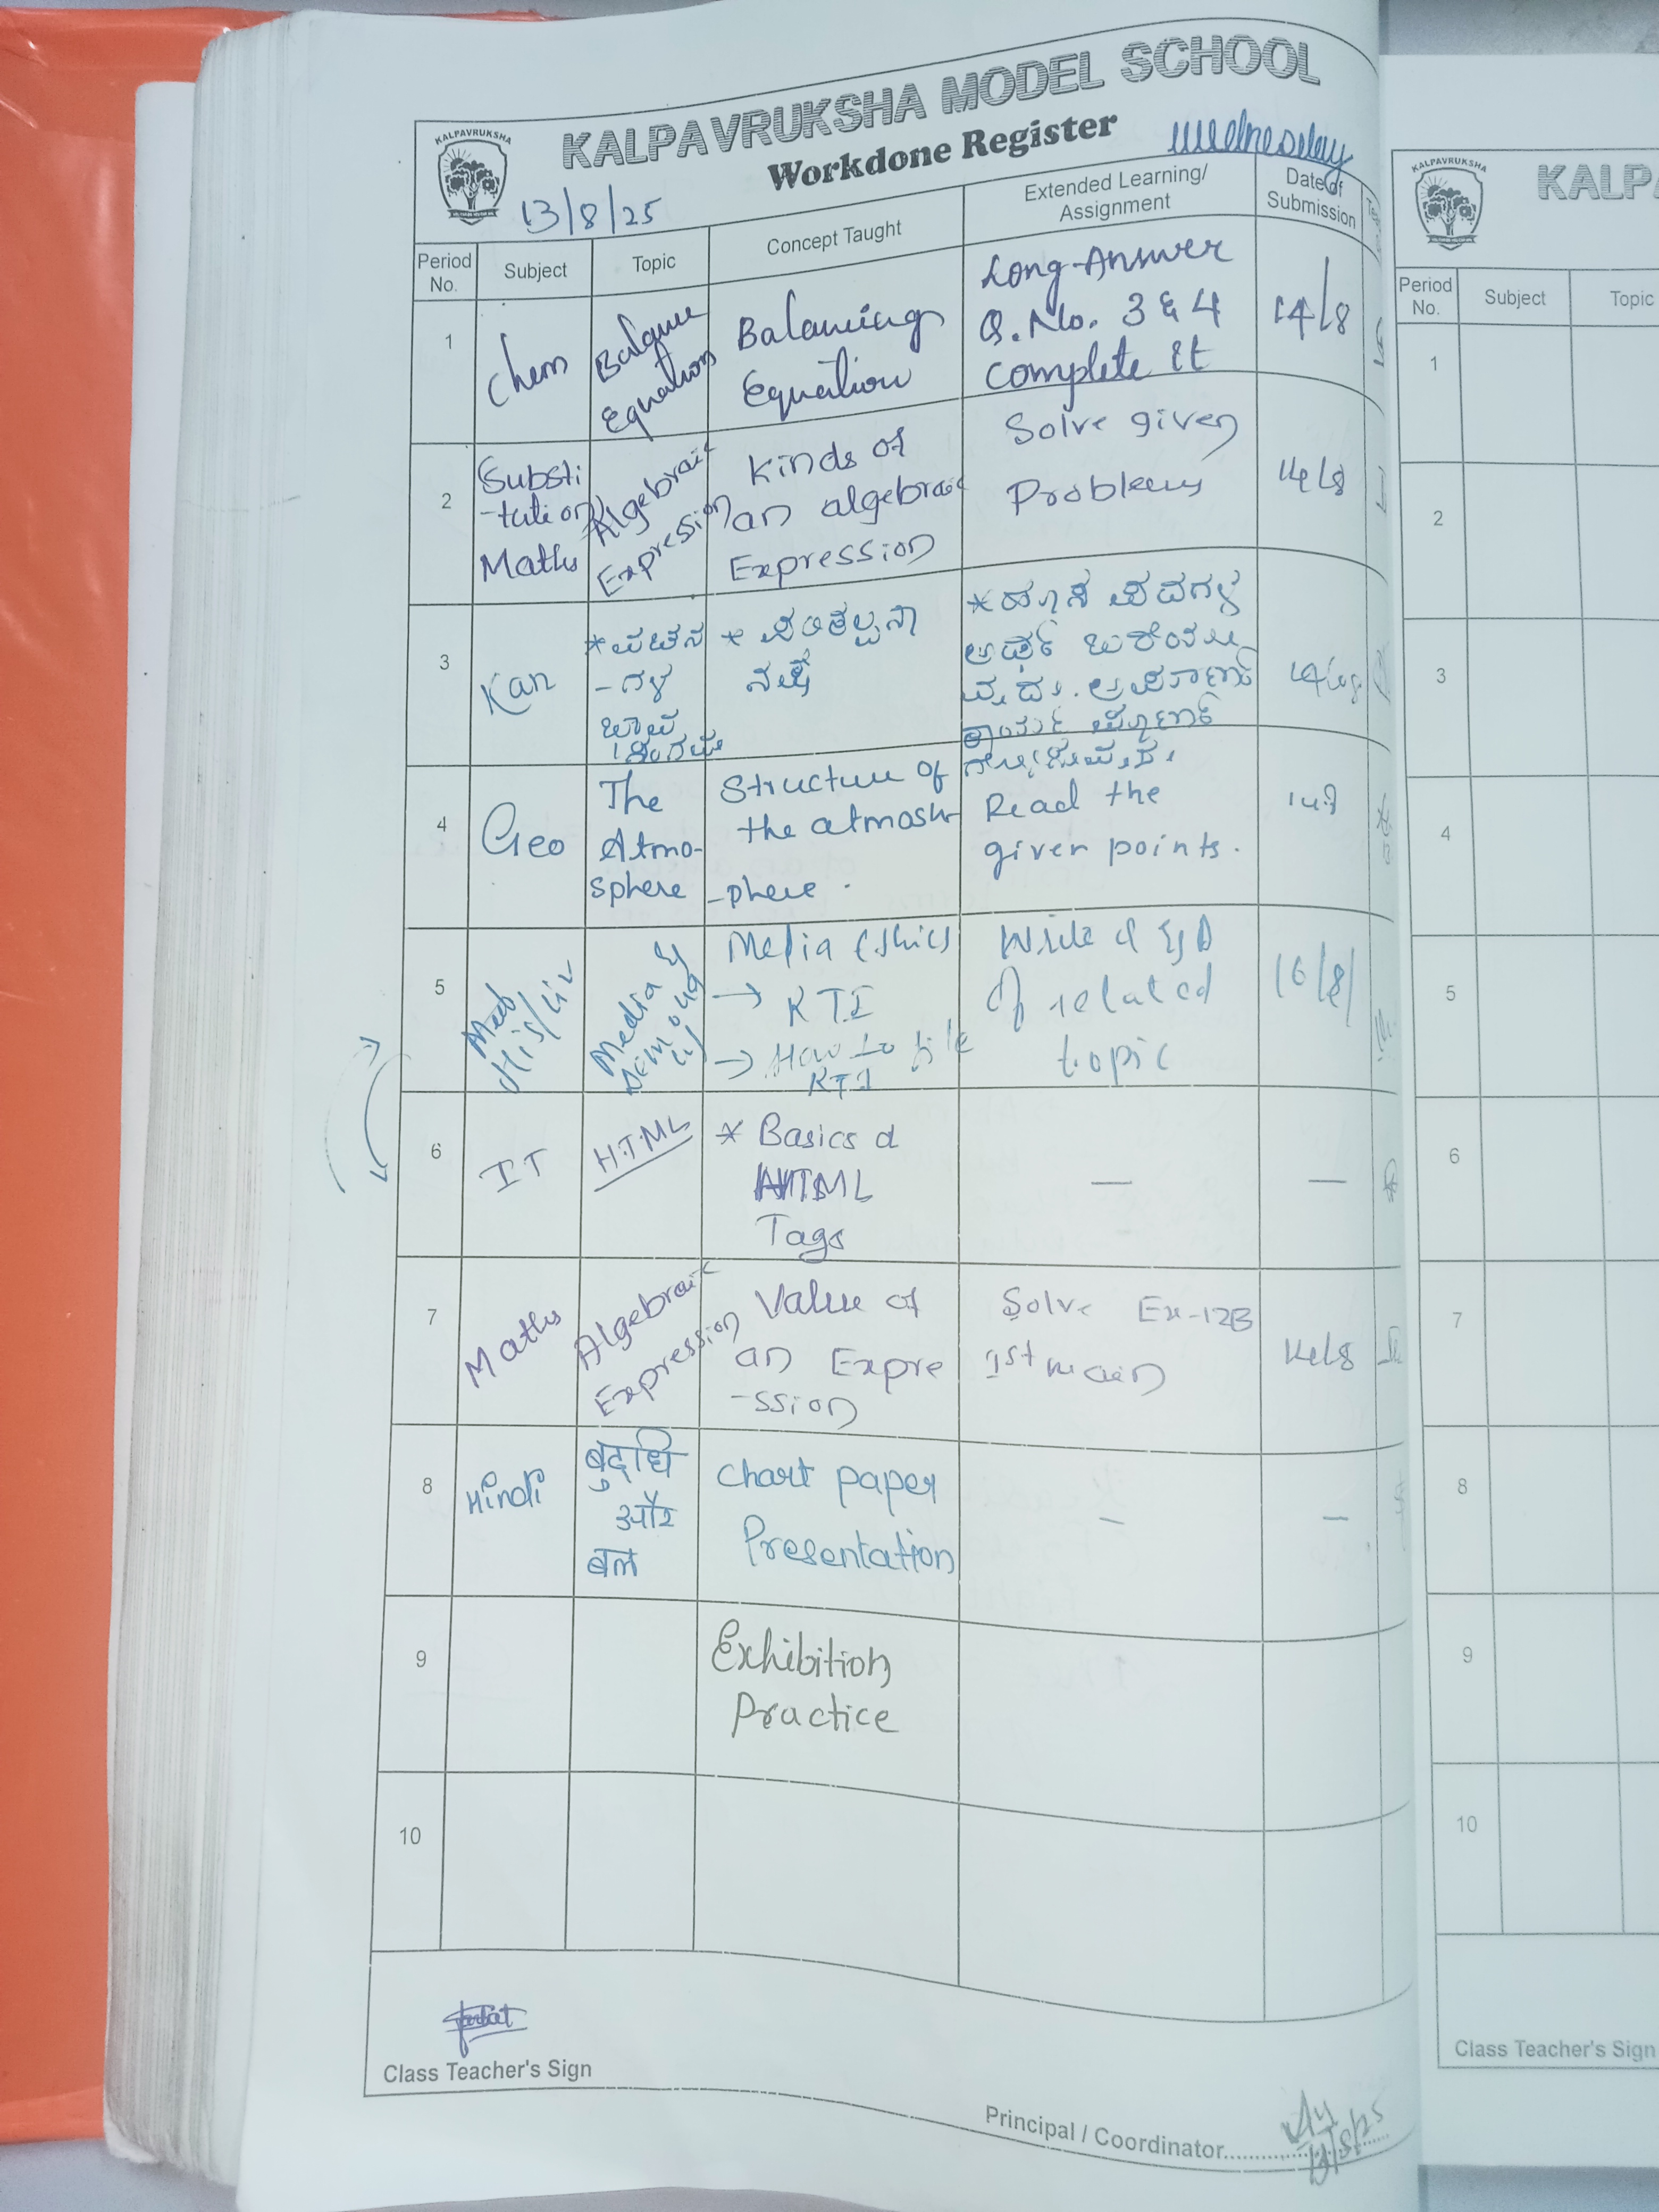 KALPAVRUKSHA MODEL SCHOOL
KALPAVRUKSHA
Workdone Register
Wednesday
13/8/25
Period No.
Subject
Topic
Concept Taught
Extended Learning/ Assignment
Date of Submission
1
Chem
Balance
Equations
Balancing
Equation
Long-Answer
Q.No. 3 & 4
complete it
14/8
2
Substi
-tution
Maths
Algebraic
Expression
Kinds of
an algebraic
Expression
Solve given
Problems
14/8
3
Kan
14/8
4
Geo
The
Atmo-
sphere
Structure of
the atmos
-phere.
Read the
given points.
14/8
5
His/Civ
Media &
Media Ethics
→ RTI
→ How to file
RTI
Write
of related
topic
16/8/
6
IT
HTML
* Basics of
HTML
Tags
—
—
7
Maths
Algebraic
Expression
Value of
an Expre
-ssion
Solve Ex-12B
1st main
14/8
8
Hindi
बुद्धि
और
बल
Chart paper
Presentation
–
–
9
Exhibition
Practice
10
Class Teacher's Sign
Principal / Coordinator
KALPAVRUKSHA
KALPA
Period No.
Subject
Topic
1
2
3
4
5
6
7
8
9
10
Class Teacher's Sign